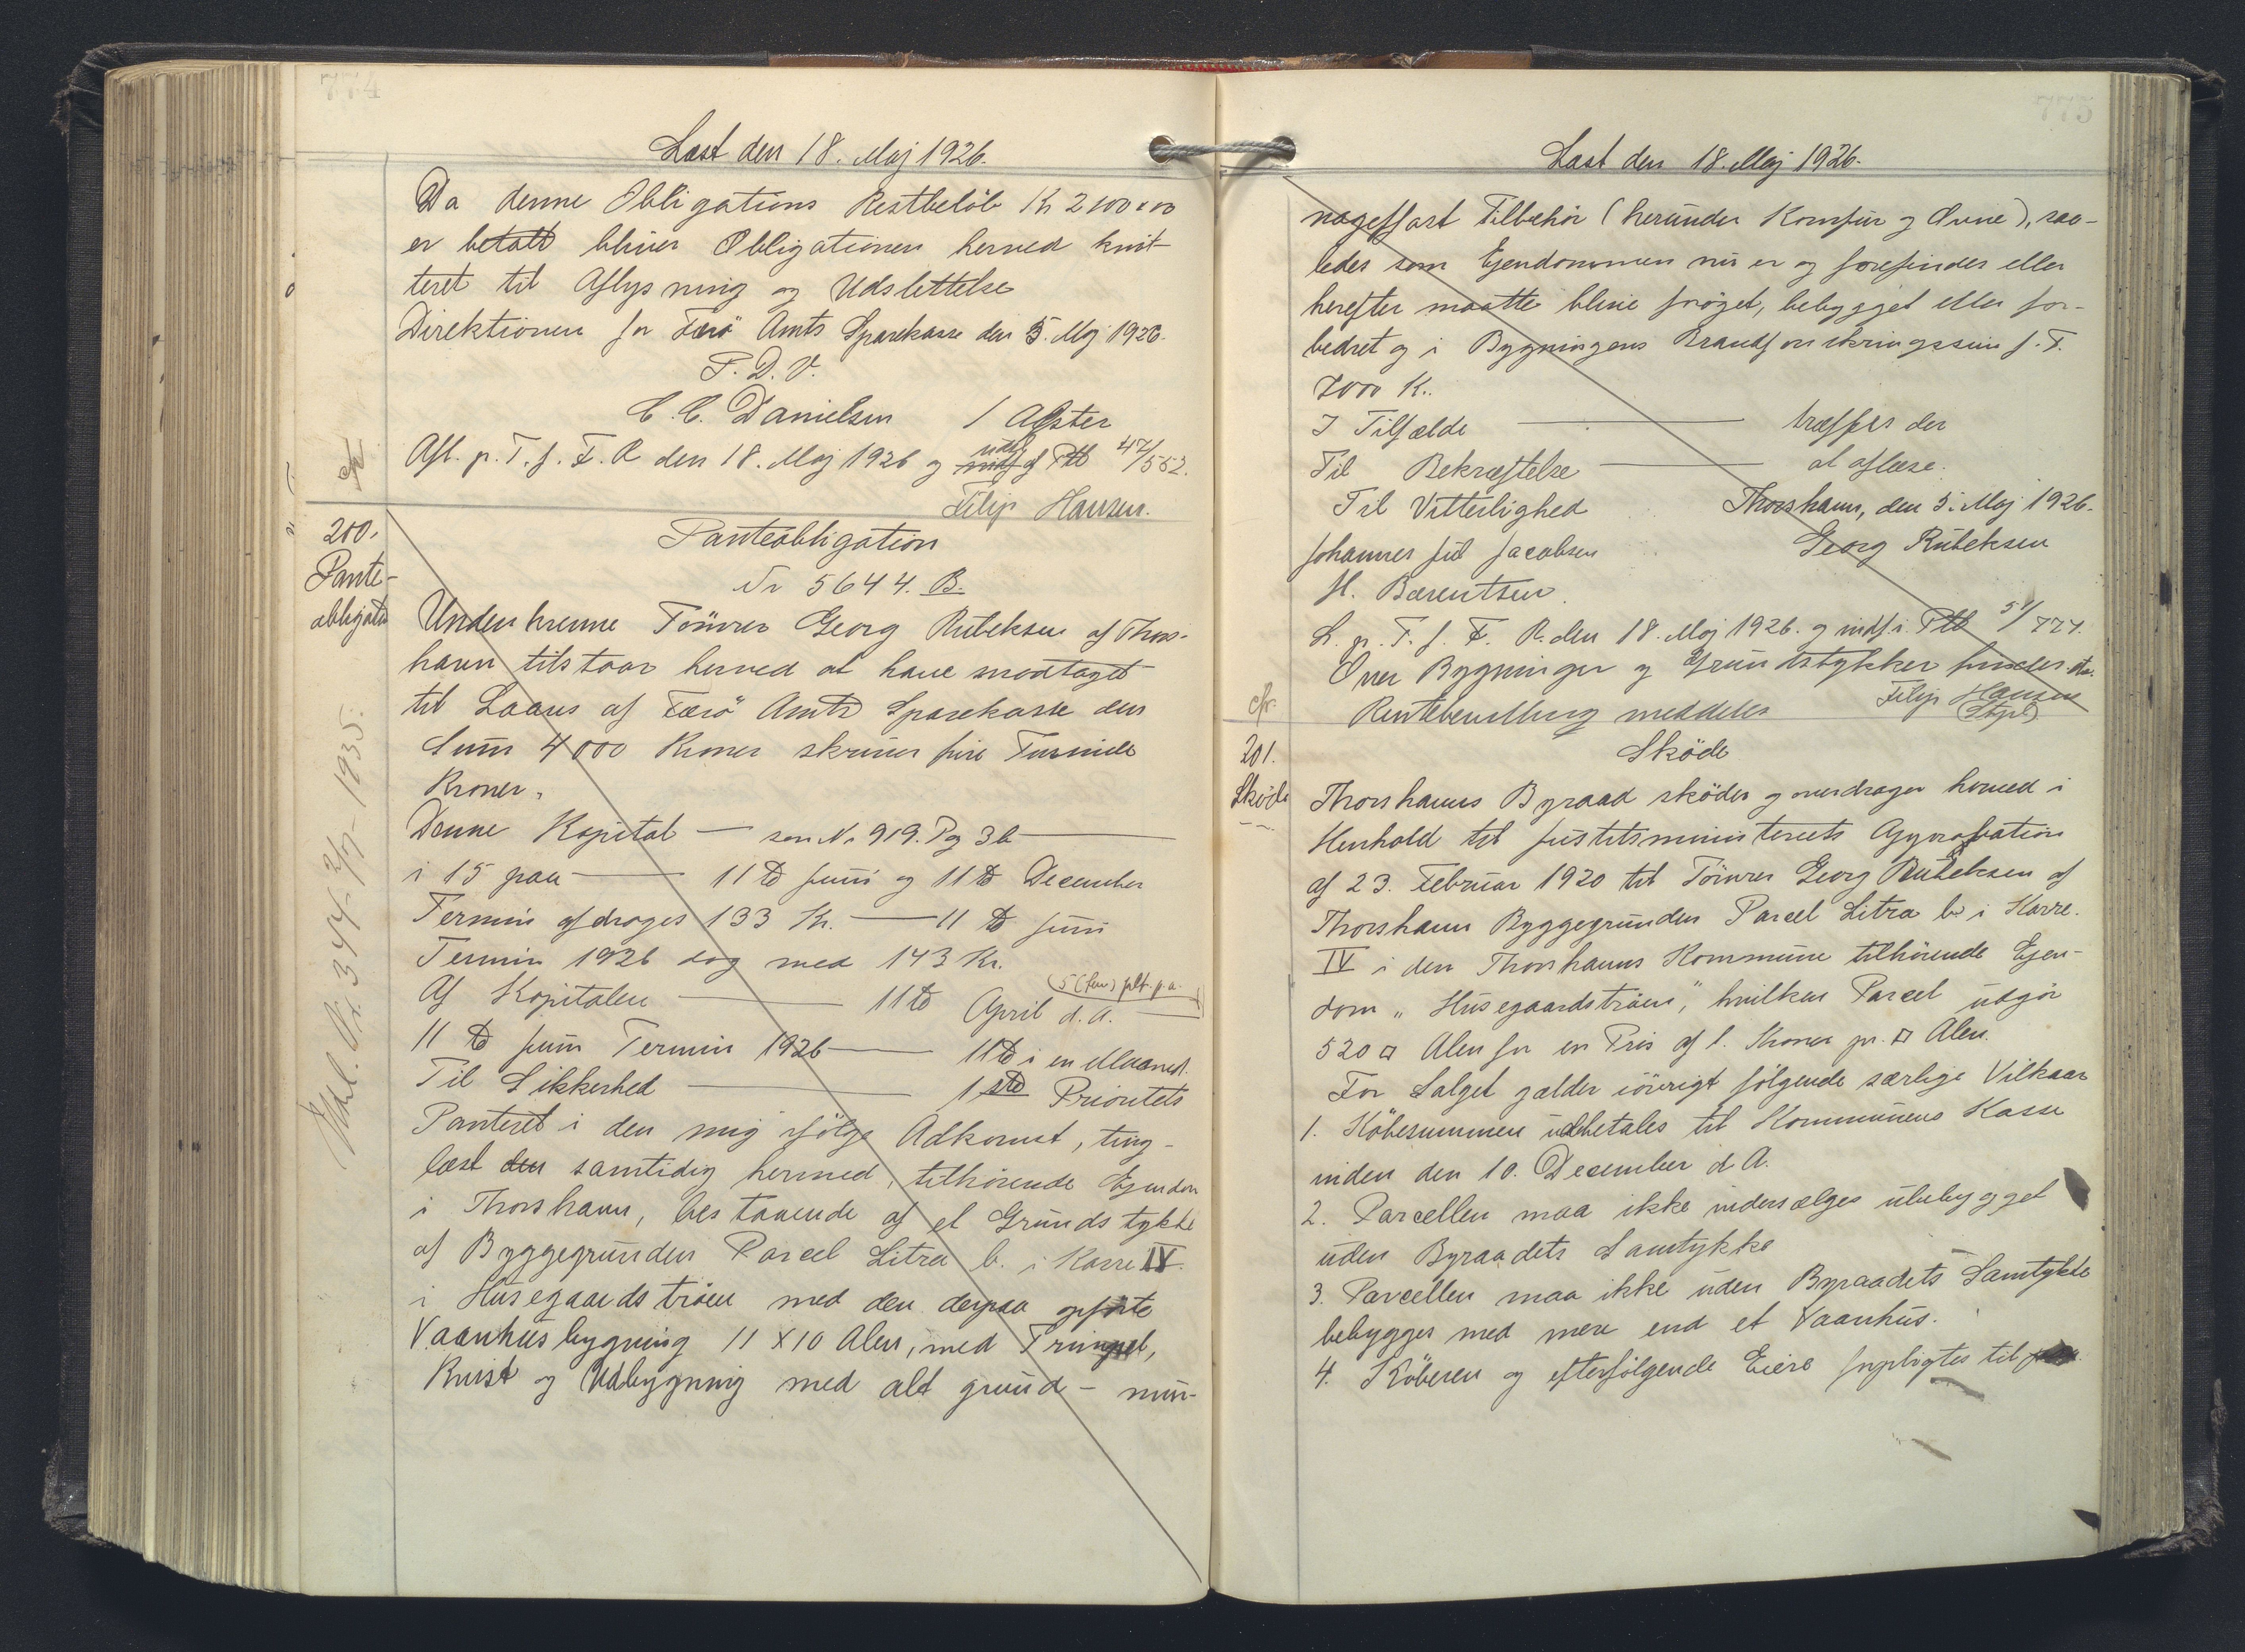 774
Læst den 18. Maj 1926.
Da denne Obligations Restbeløb Kr 2100 x 00
er betalt bliver Obligationen herved kvit-
teret til Aflysning og Udslettelse
Direktionen for Færø Amts Sparekasse den 5. Maj 1926.
P. D. V.
C. C. Danielsen / A Øster
Afl. p. T. f. F. R den 18. Maj 1926 og udsl af Ptb 47/552.
Filip Hansen.
200.
Pante-
obligation
Panteobligation
Nr 5644. B.
Undertegnede Tömrer Georg Rubeksen af Thors-
havn tilstaar herved at have modtaget
til Laans af Færø Amts Sparekasse den
Sum 4000 Kroner skriver fire Tusinde
Kroner.
Denne Kapital — som Nr 919. Pg 36 —
i 15 paa — 11 td Juni og 11 td December
Termin afdrages 133 Kr. — 11 td Juni
Termin 1926 dog med 143 Kr.
Af Kapitalen — 11td April d. A. 5 (fem) pCt. p. a. —
11 td Juni Termin 1926 — 11td i en Maaned.
Til Sikkerhed — 1 ste Prioritets
Panteret i den mig ifölge Adkomst, ting-
læst den samtidig hermed, tilhörende Ejendom
i Thorshavn, bestaaende af et Grundstykke
af Byggegrunden Parcel Litra b. i Karre IV.
i Husegaardströen med den derpaa opförte
Vaanhusbygning 11 x 10 Alen, med Trimpel,
Kvist og Udbygning med alt grund- mur-
Udsl. 344 2/7 - 1935.
775
Læst den 18. Maj 1926.
nagelfast Tilbehör (herunder Komfur og Ovne), saa-
ledes som Ejendommen nu er og forefindes eller
herefter maatte blive foröget, bebygget eller for-
bedret og i Bygningens Brandforsikringssum f. T.
7000 K.
I Tilfælde — træffes der
Til Bekræftelse — at aflæse.
Til Vitterlighed Thorshavn, den 5. Maj 1926.
Johannes Jul Jacobsen Georg Rubeksen
H. Bærentsen.
L. p. T. f. F. R. den 18. Maj 1926. og indf. i Ptb 51/774.
Over Bygninger og Grundstykker findes
meddeles Filip Hansen
201.
Sköde
Sköde
Thorshavns Byraad sköder og overdrager herved i
Henhold til Justitsministeriets Approbation
af 23. Februar 1920 til Tömrer Georg Rubeksen af
Thorshavn Byggegrunden Parcel Litra b i Karre.
IV i den Thorshavns Kommune tilhörende Ejen-
dom „Husegaardströen", hvilken Parcel udgör
520 □ Alen for en Pris af 1. Krone pr. □ Alen.
For Salget gælder iövrigt fölgende særlige Vilkaar
1. Köbesummen udbetales til Kommunens Kasse
inden den 10. December d. A.
2. Parcellen maa ikke videresælges ubebygget
uden Byraadets Samtykke
3. Parcellen maa ikke uden Byraadets Samtykke
bebygges med mere end et Vaanhus.
4. Köberen og efterfölgende Eiere forpligtes til